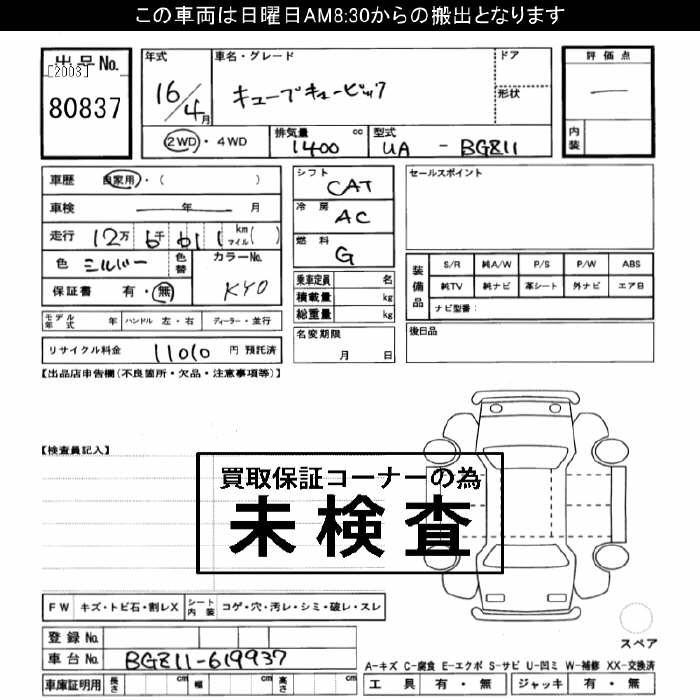 この車両は日曜日AM8:30からの搬出となります
出品No. 年式 車名・グレード ドア 評価点
[2003]
80837 16/4月 キューブキュービック 形状 ー
2WD・4WD 排気量 cc 1400 型式 UA - BGZ11 内装
車歴 自家用・( ) シフト CAT セールスポイント
車検 年 月 冷房 AC
走行 12万6千611km マイル( ) 燃料 G
色 シルバー 色替 カラーNo. 装備品 S/R 純A/W P/S P/W ABS
保証書 有・無 KY0 乗車定員 名 純TV 純ナビ 革シート 外ナビ エアB
積載量 kg ナビ型番:
モデル年式 年 ハンドル 左・右 ディーラー・並行 総重量 kg
リサイクル料金 11010 円 預託済 名変期限 月 日 後日品
【出品店申告欄(不良箇所・欠品・注意事項等)】
【検査員記入】
買取保証コーナーの為
未検査
FW キズ・トビ石・割レX シート内装 コゲ・穴・汚レ・シミ・破レ・スレ
登録No. スペア
車台No. BGZ11-619937
A-キズ C-腐食 E-エクボ S-サビ U-凹ミ W-補修 XX-交換済
車庫証明用 長さ cm 幅 cm 高さ cm 工具 有・無 ジャッキ 有・無